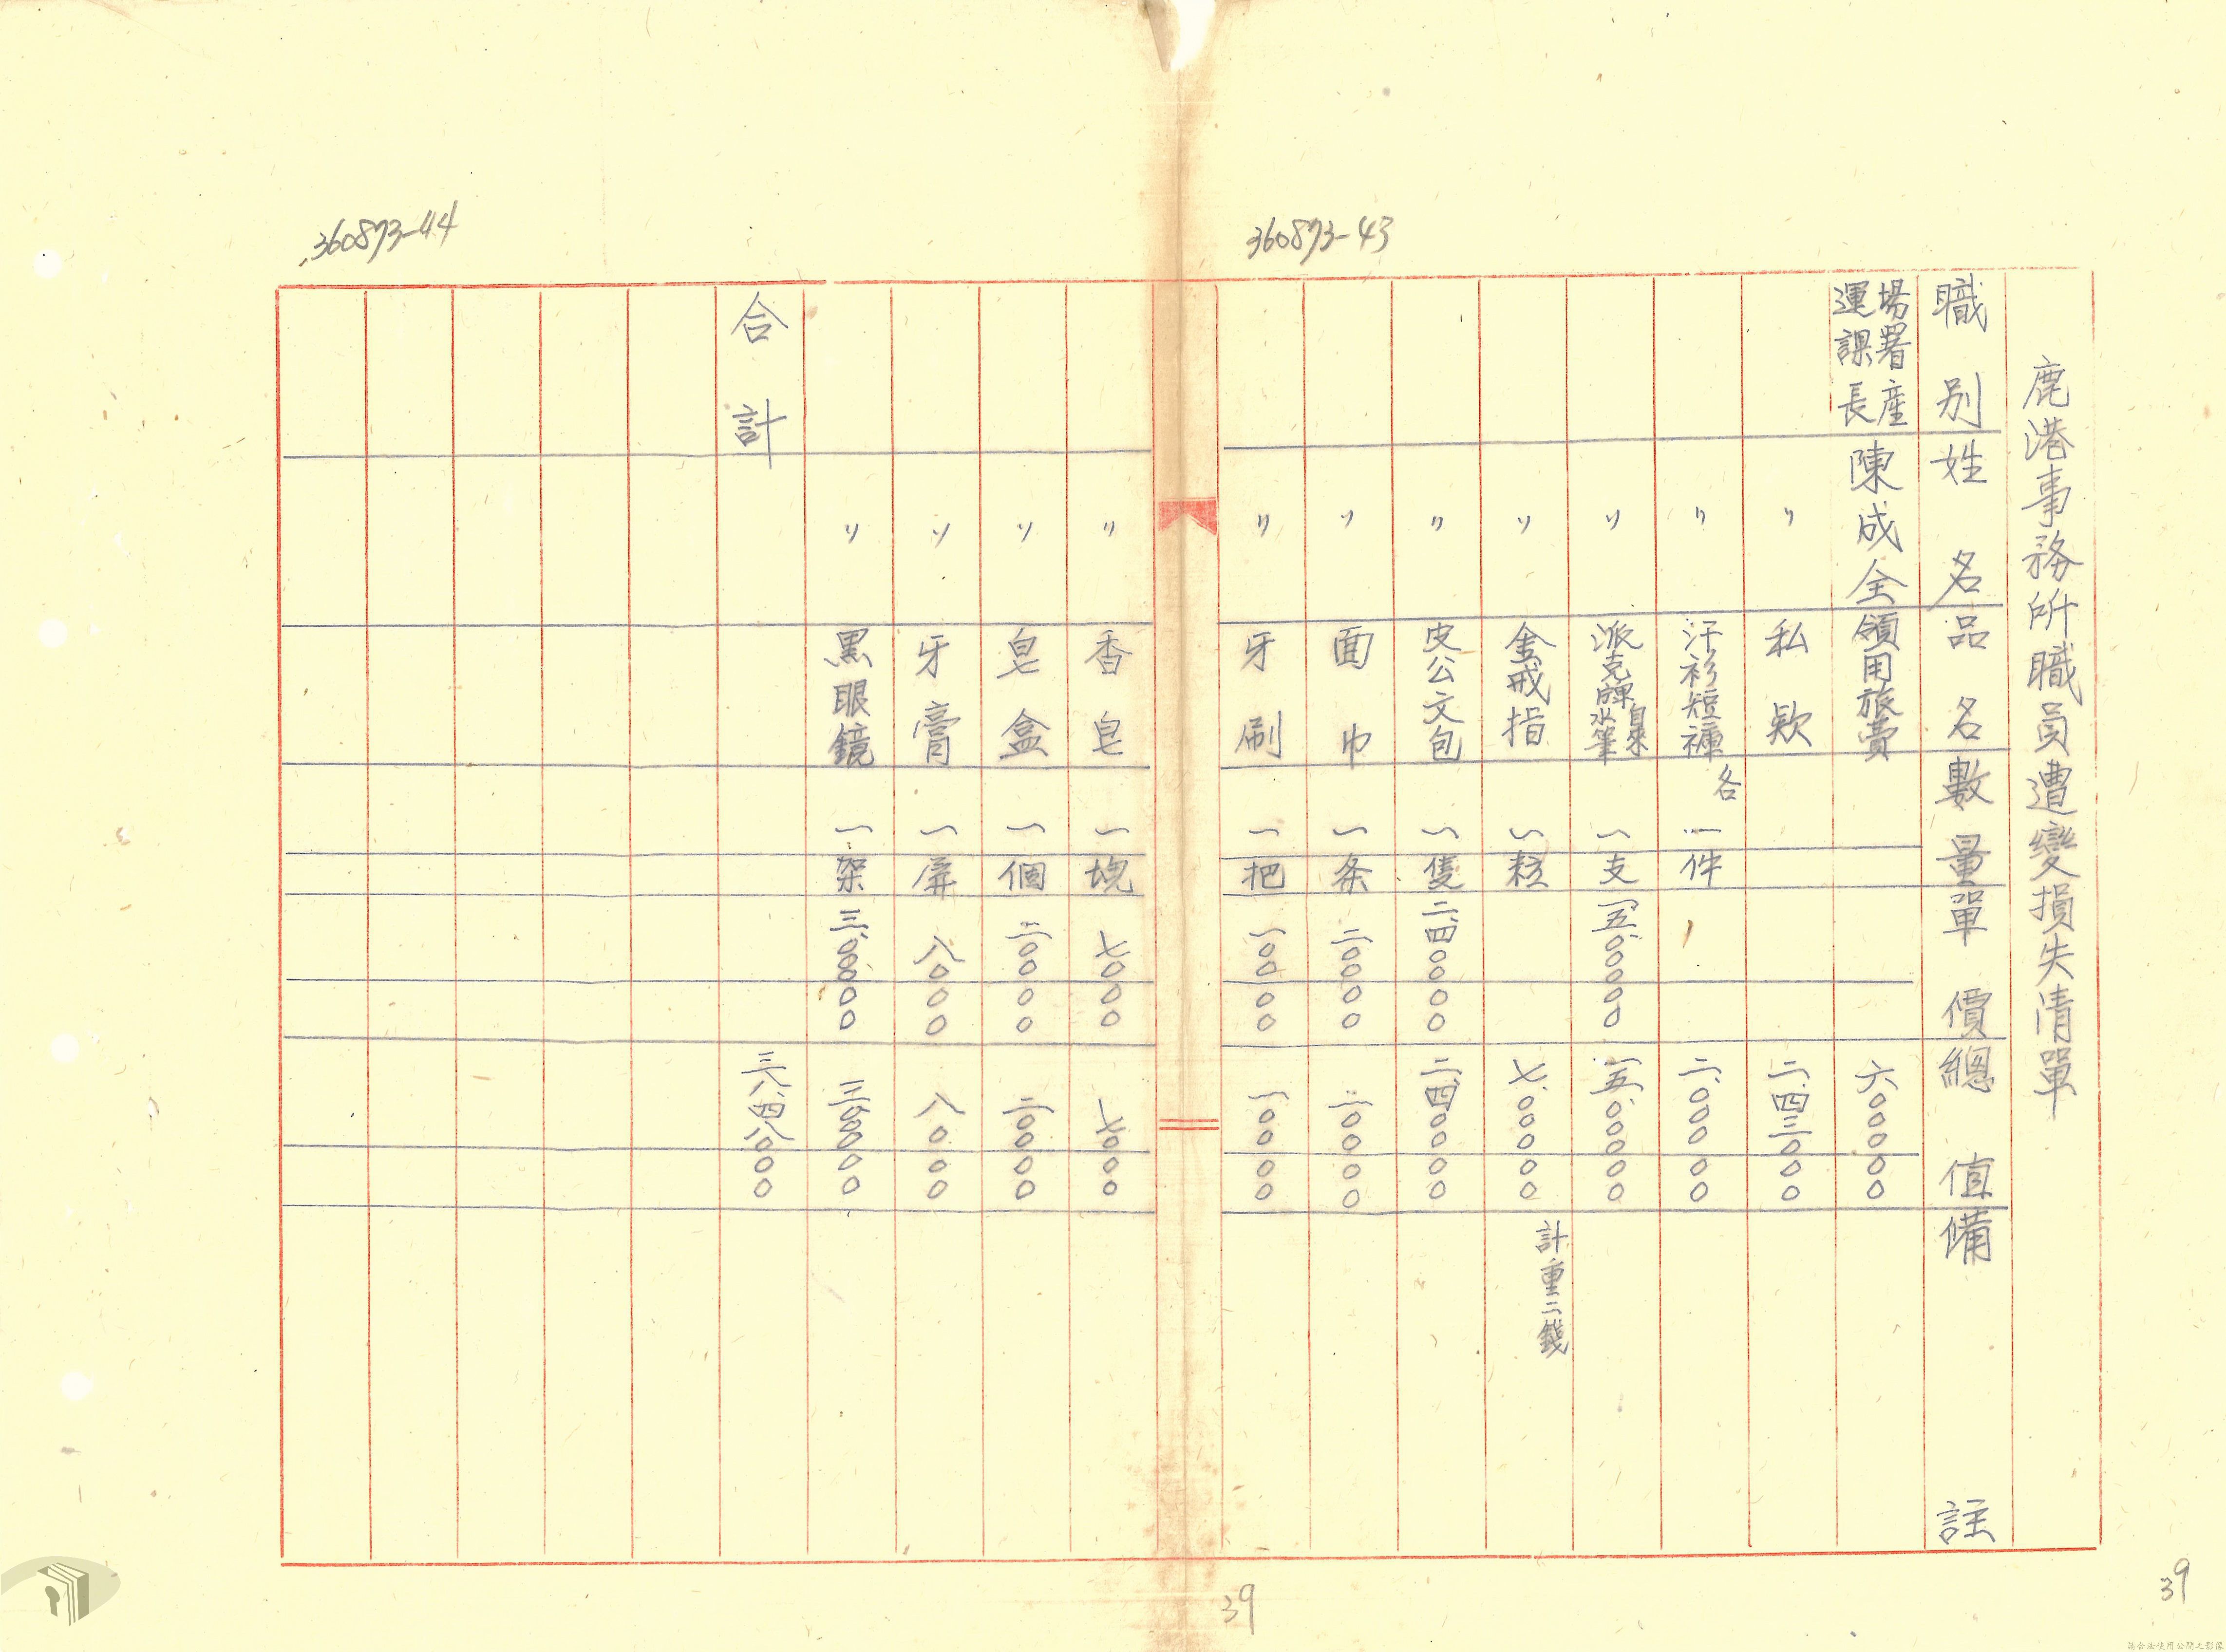 360873-43
360873-44
鹿港事務所職員遭變損失清單
職別 姓名 品名 數量 單價 總值 備註
場署產運課長 陳成全 領用旅費 六〇〇〇〇〇
〃 私欵 二,四三〇〇〇
〃 汗衫短褲 各一件 二,〇〇〇〇〇
〃 派克牌自來水筆 一支 一五,〇〇〇〇〇 一五,〇〇〇〇〇
〃 金戒指 一粒 七,〇〇〇〇〇 計重二錢
〃 皮公文包 一隻 二,四〇〇〇〇 二,四〇〇〇〇
〃 面巾 一条 二〇〇〇〇 二〇〇〇〇
〃 牙刷 一把 一〇〇〇〇 一〇〇〇〇
〃 香皂 一塊 七〇〇〇 七〇〇〇
〃 皂盒 一個 二〇〇〇〇 二〇〇〇〇
〃 牙膏 一屏 八〇〇〇 八〇〇〇
〃 黑眼鏡 一架 三,〇〇〇〇〇 三〇〇〇〇〇
合計 三八,四八〇〇〇
39
39
請合法使用公開之影像